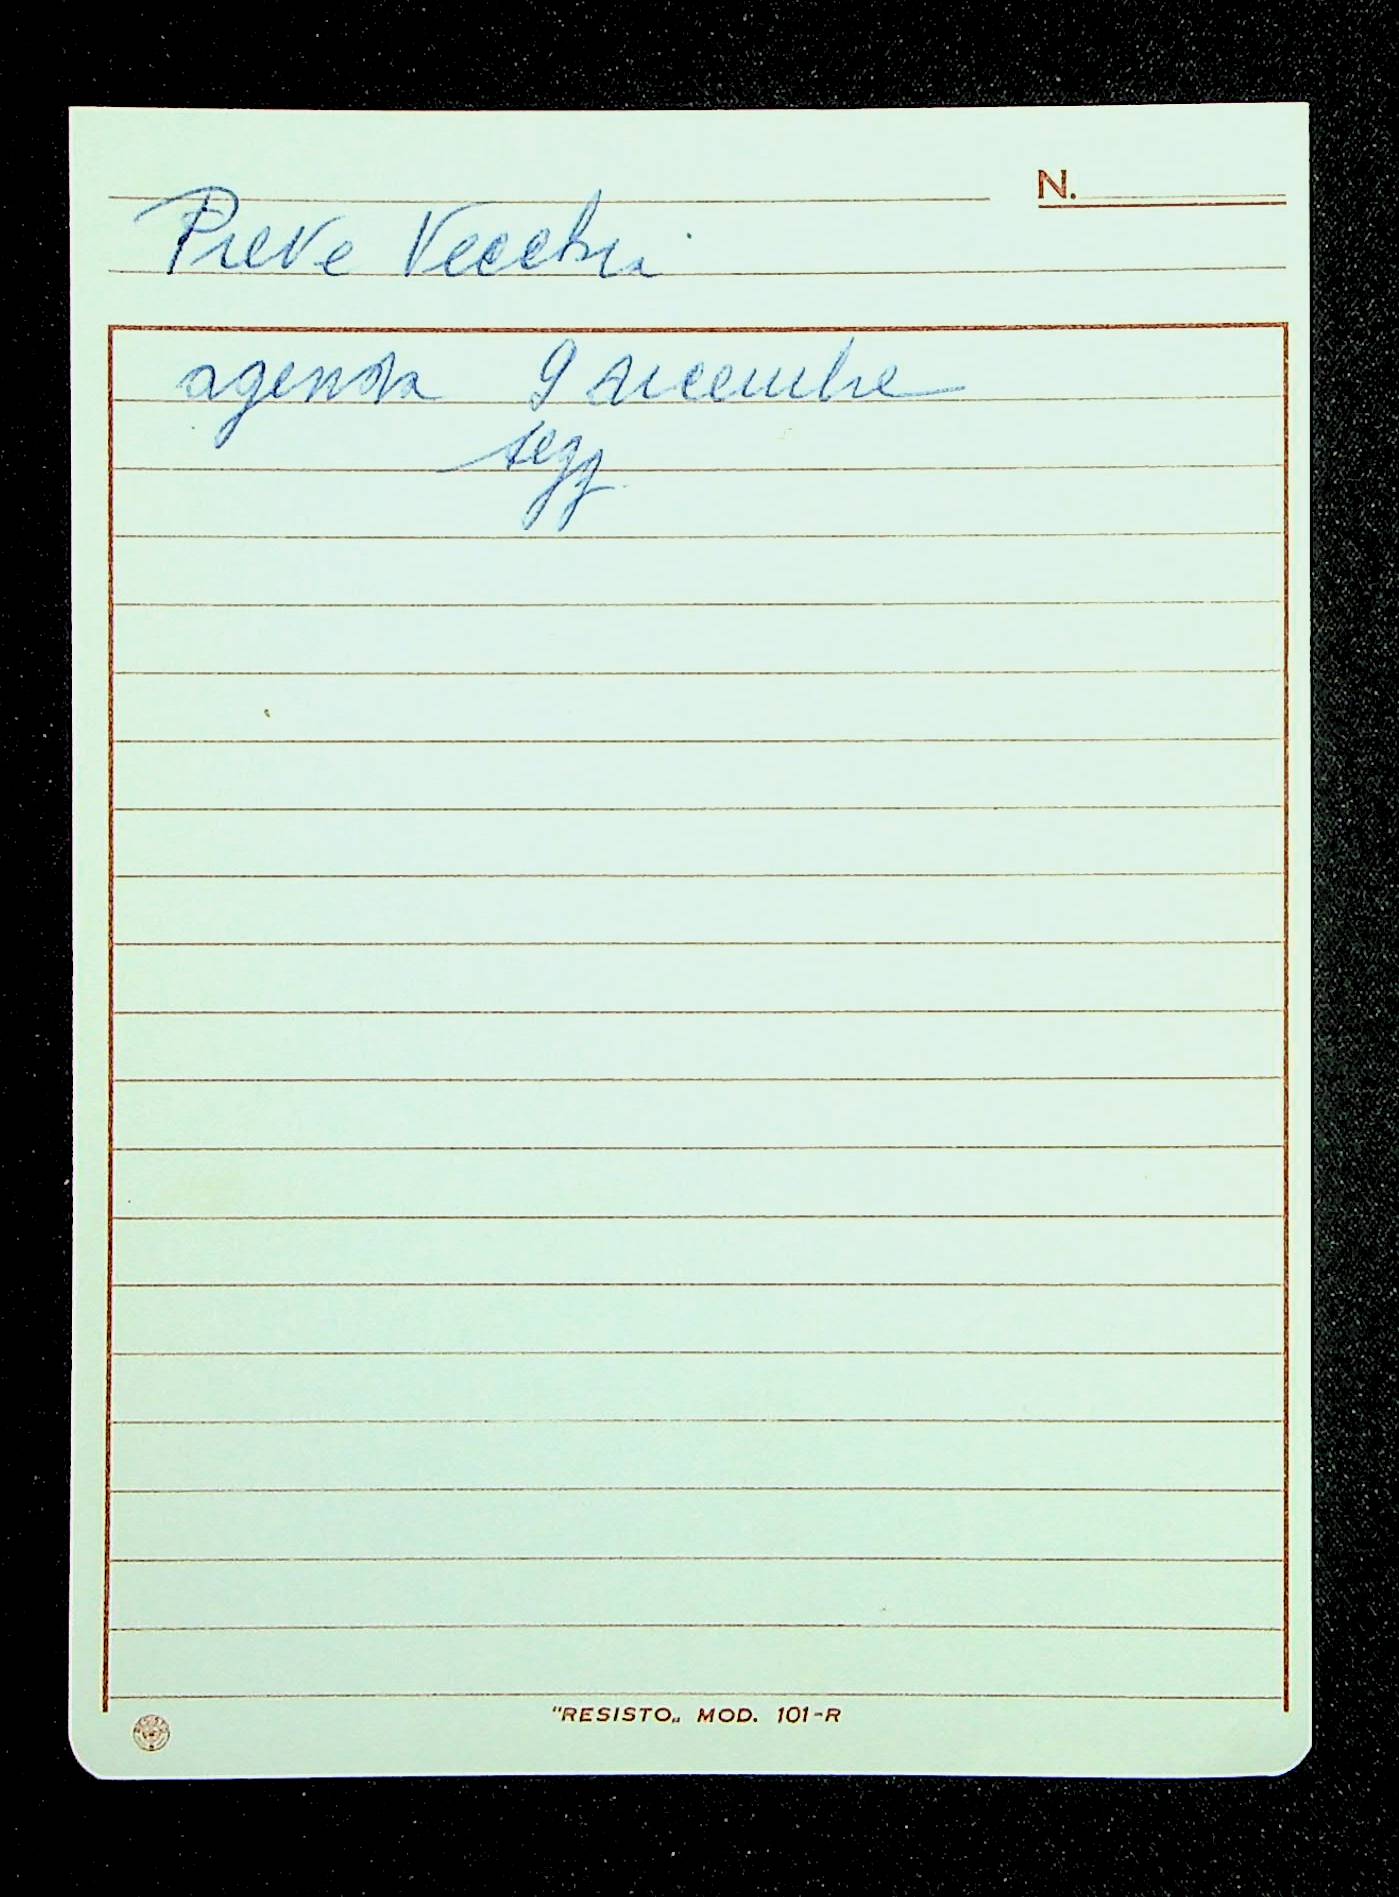 N.
Pieve Vecchia
agenda 9 dicembre
segg.
"RESISTO„ MOD. 101-R